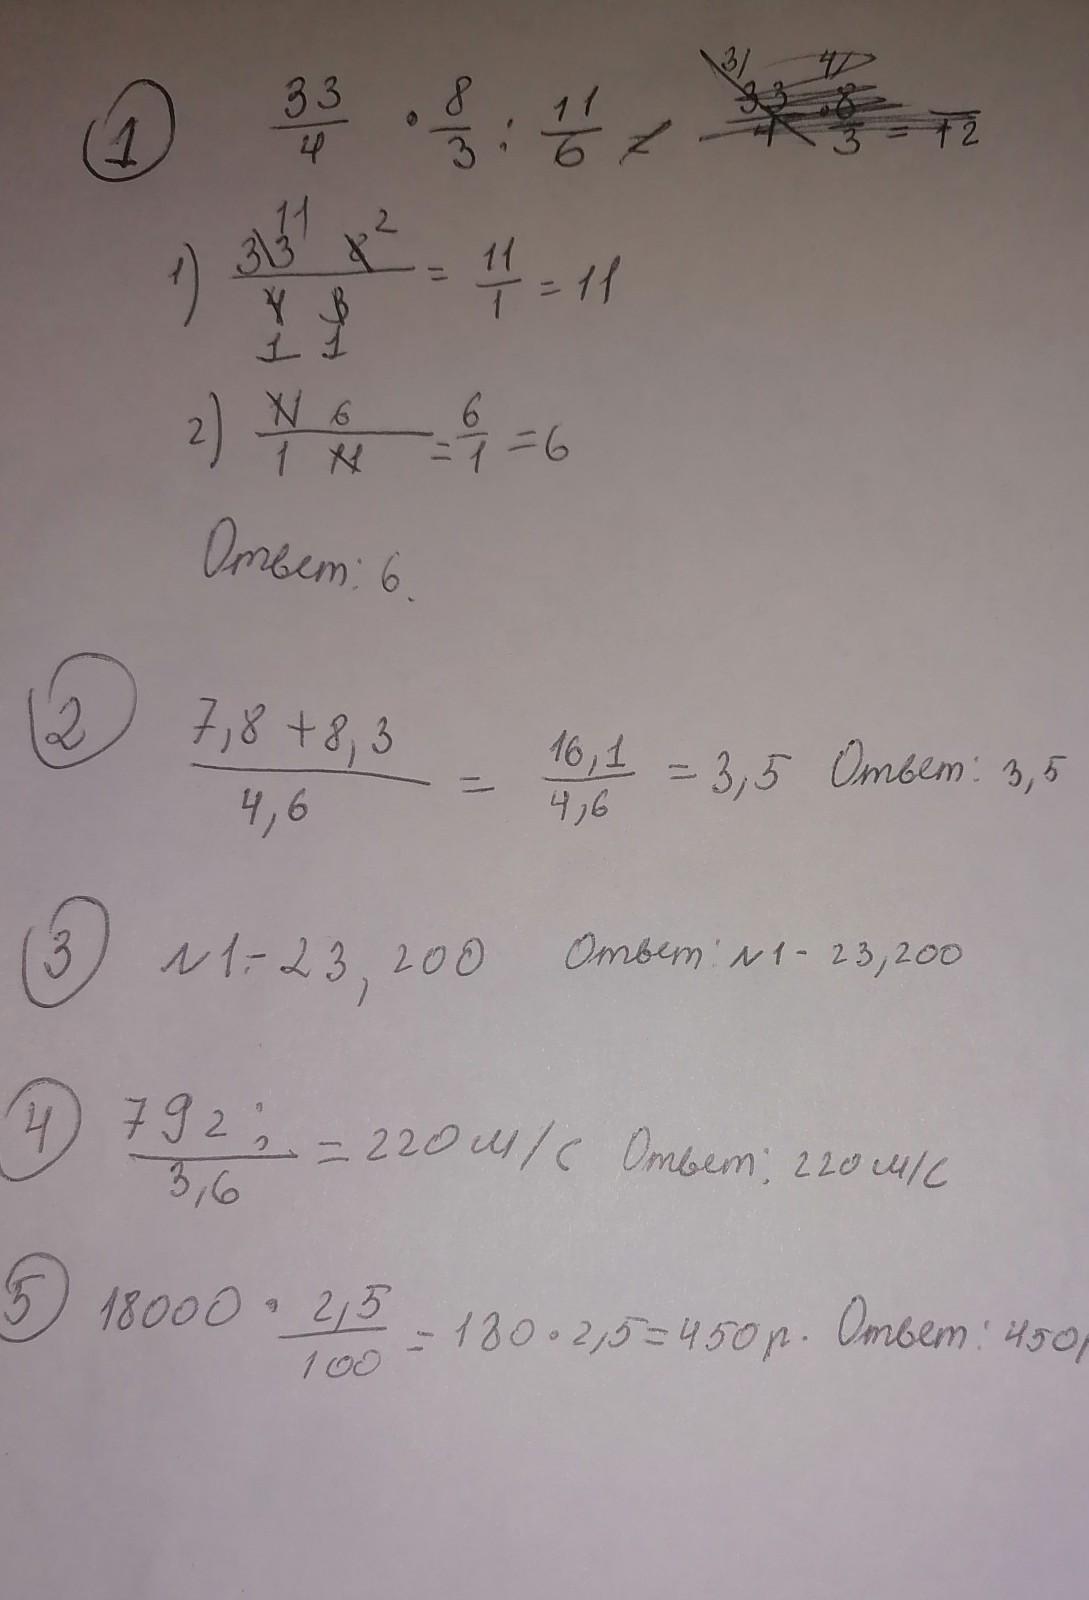 1 33/4 · 8/3 : 11/6 =
1) 33 11 8 2 / 4 3 1 1 = 11/1 = 11
2) 11 6 / 1 11 = 6/1 = 6
Ответ: 6.
2 7,8 + 8,3 / 4,6 = 16,1 / 4,6 = 3,5 Ответ: 3,5
3 N1 - 23,200 Ответ: N1 - 23,200
4 792 : / 3,6 = 220 м/с Ответ: 220 м/с
5 18000 · 2,5/100 = 180 · 2,5 = 450 р. Ответ: 450р